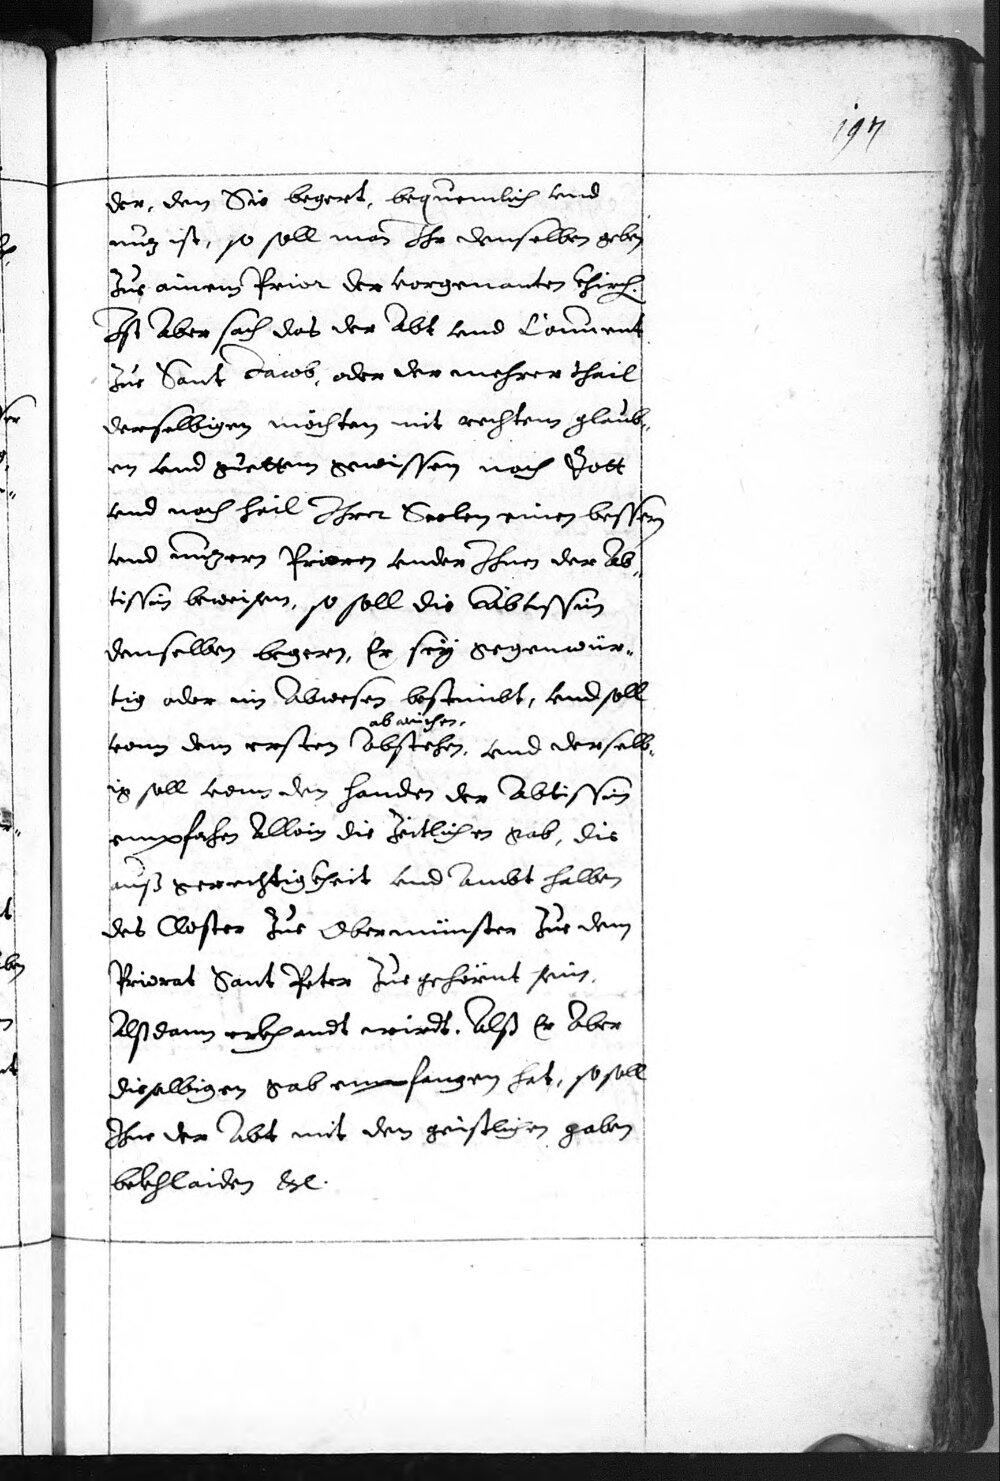 197
der, den Sie begert, bequemlich vnd
nuz ist, so soll man Ihr denselben geben
Zue ainem Prior der vorgenanten Khirch.
Ist Aber sach das der Abt vnd Conuent
Zue Sant Jacob, oder der mehrer theil
derselbigen möchten mit rechtem glaub„
en vnd guettem gewissen nach Gott
vnd nach heil Ihrer Seelen einen bessern
vnd nuzern Prioren vnder Ihnen der Ab„
tissin beweisen, so soll die Äbtissin
demselben begern, Er seÿ gegenwür„
tig oder im Abwesen bestimbt, vnd soll
abwichen,
vonn dem ersten Abstehen, vnd derselb„
ig soll vonn den handen der Abtissin
empfahen Allein die Zeitlichen gab, die
auß gerechtigkheit vnd Ambt halben
des Closter Zue Obermünster Zue dem
Priorat Sant Peter Zue gehörnt sein,
Alßdann erkhandt wirdt. Alß Er Aber
dieselbigen gab empfangen hat, so soll
Ihne der Abt mit den geistlichen gaben
bekhlaiden &c.